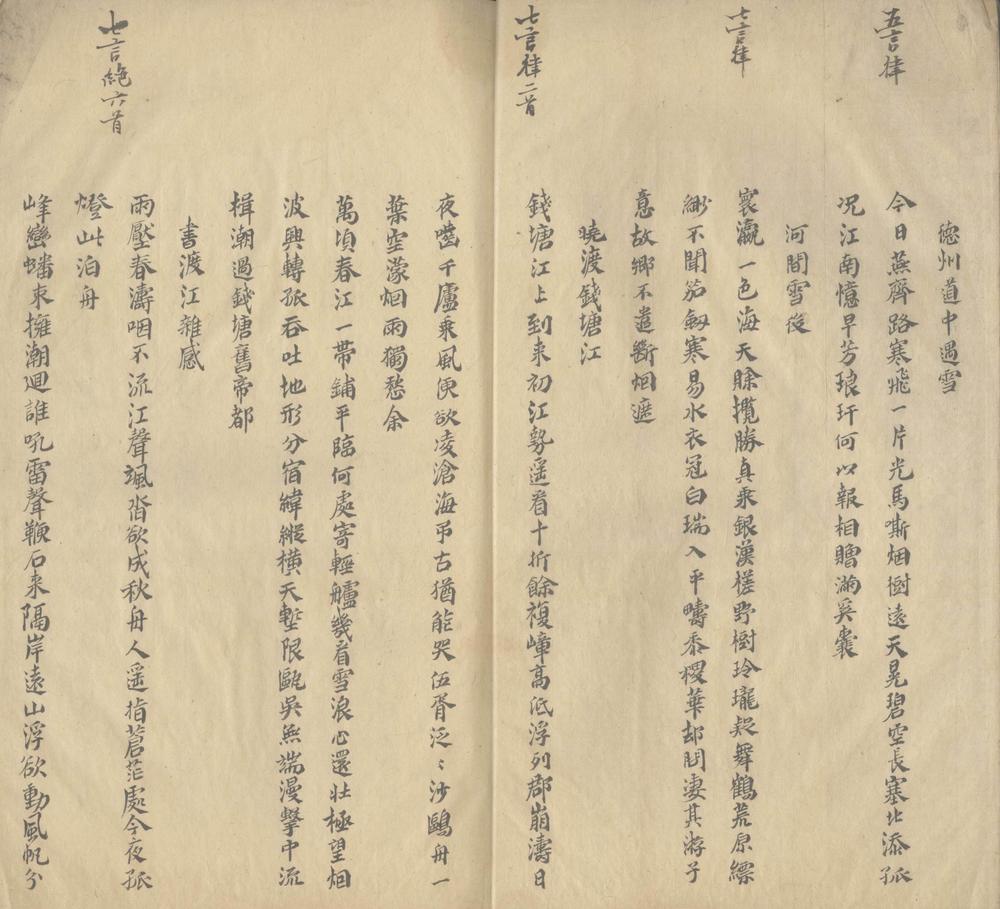 五言律
德州道中遇雪
今日燕齊路寒飛一片光馬嘶烟樹遠天晃碧空長塞北添孤
况江南憶早芳琅玕何以報相贈滿奚囊
七言律
河間雪後
寰瀛一色海天賒攬勝真乘銀漢槎野樹玲瓏疑舞鶴荒原縹
緲不聞笳劒寒易水衣冠白瑞入平疇黍稷華却閔凄其游子
意故鄉不遣斷烟遮
曉渡錢塘江
七言律二首
錢塘江上到来初江勢遥看十折餘複嶂高低浮列郡崩濤日
夜嚙千廬乘風便欲凌滄海弔古猶能哭伍胥泛〻沙鷗舟一
葉空濛烟雨獨愁余
萬頃春江一帶鋪平臨何處寄輕艫幾看雪浪心還壮極望烟
波興轉孤吞吐地形分宿緯縱橫天塹限甌吳無端漫擊中流
楫潮過錢塘舊帝都
書渡江雜感
七言絶六首
雨壓春濤咽不流江聲颯沓欲成秋舟人遥指蒼茫處今夜孤
燈此泊舟
峰巒蟠束擁潮廻誰吼雷聲鞭石来隔岸遠山浮欲動風帆分